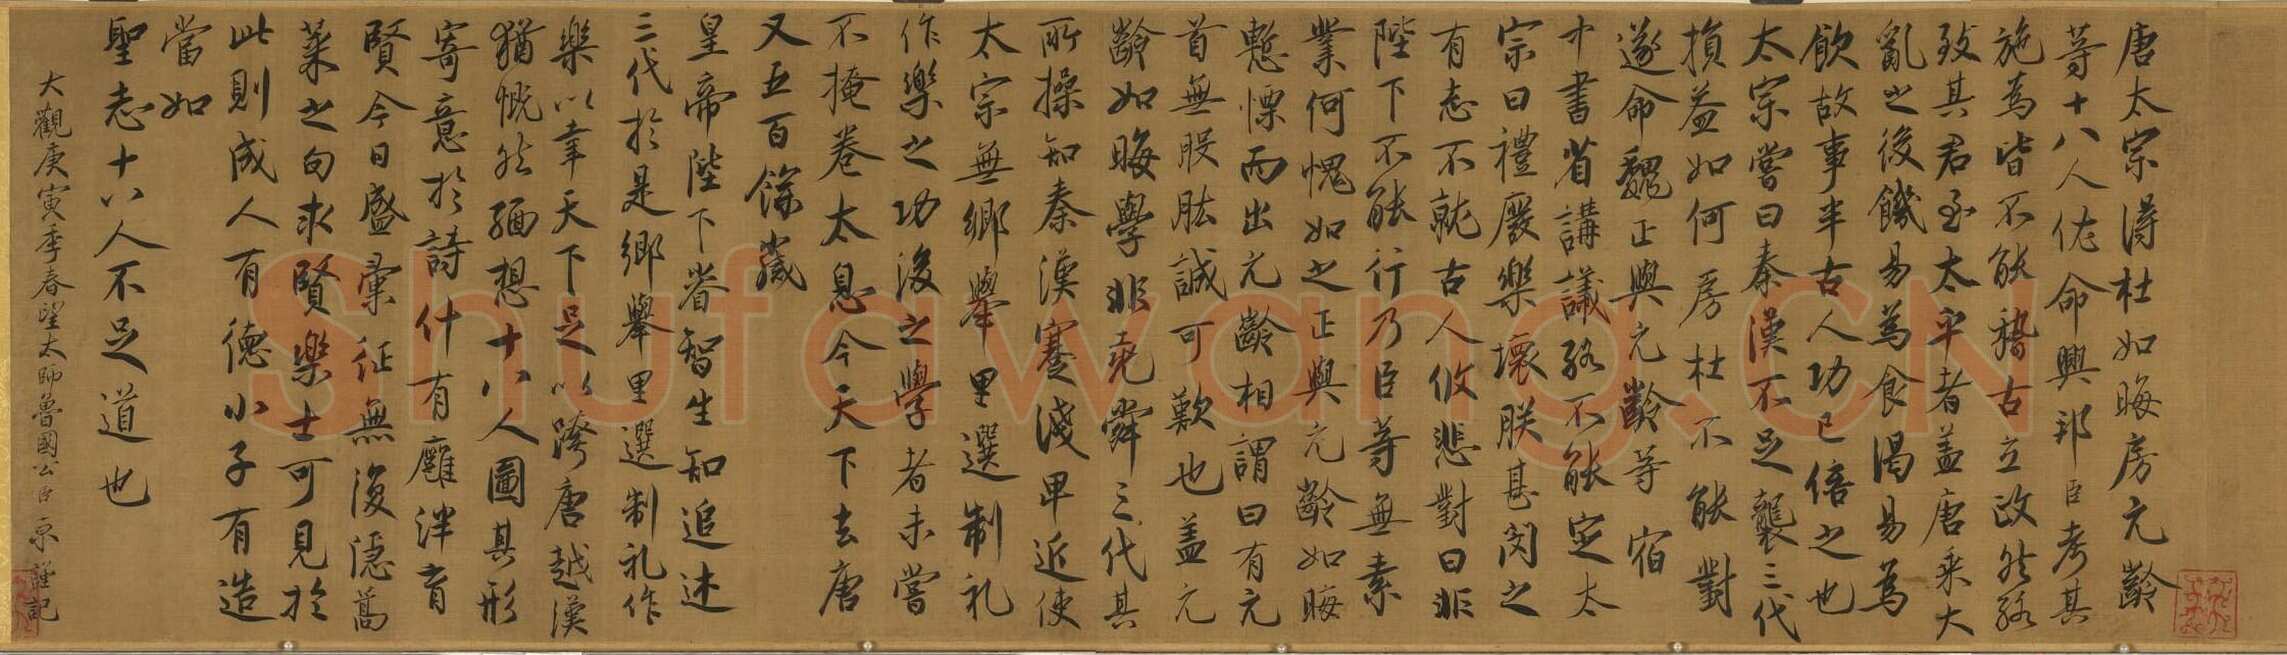 唐太宗得杜如晦房元齡
等十八人佐命興邦臣考其
施為皆不能稽古立政然終
致其君至太平者蓋唐乘大
亂之後饑易為食渴易為
飲故事半古人功已倍之也
太宗嘗曰秦漢不足襲三代
損益如何房杜不能對
遂命魏正與元齡等宿
中書省講議終不能定太
宗曰禮廢樂壞朕甚閔之
有志不就古人攸悲對曰非
陛下不能行乃臣等無素
業何愧如之正與元齡如晦
慙慄而出元齡相謂曰有元
首無股肱誠可歎也蓋元
齡如晦學非堯舜三代其
所操知秦漢蹇淺卑近使
太宗無鄉舉里選制礼
作樂之功後之學者未嘗
不掩卷太息今天下去唐
又五百餘歲
皇帝陛下睿智生知追述
三代於是鄉舉里選制礼作
樂以幸天下足以跨唐越漢
猶慨然緬想十八人圖其形
寄意於詩什有廱泮育
賢今日盛彙征無復隱蒿
萊之句求賢樂士可見於
此則成人有德小子有造
當如
聖志十八人不足道也
大觀庚寅季春望太師魯國公臣京謹記
Shufawang.CN